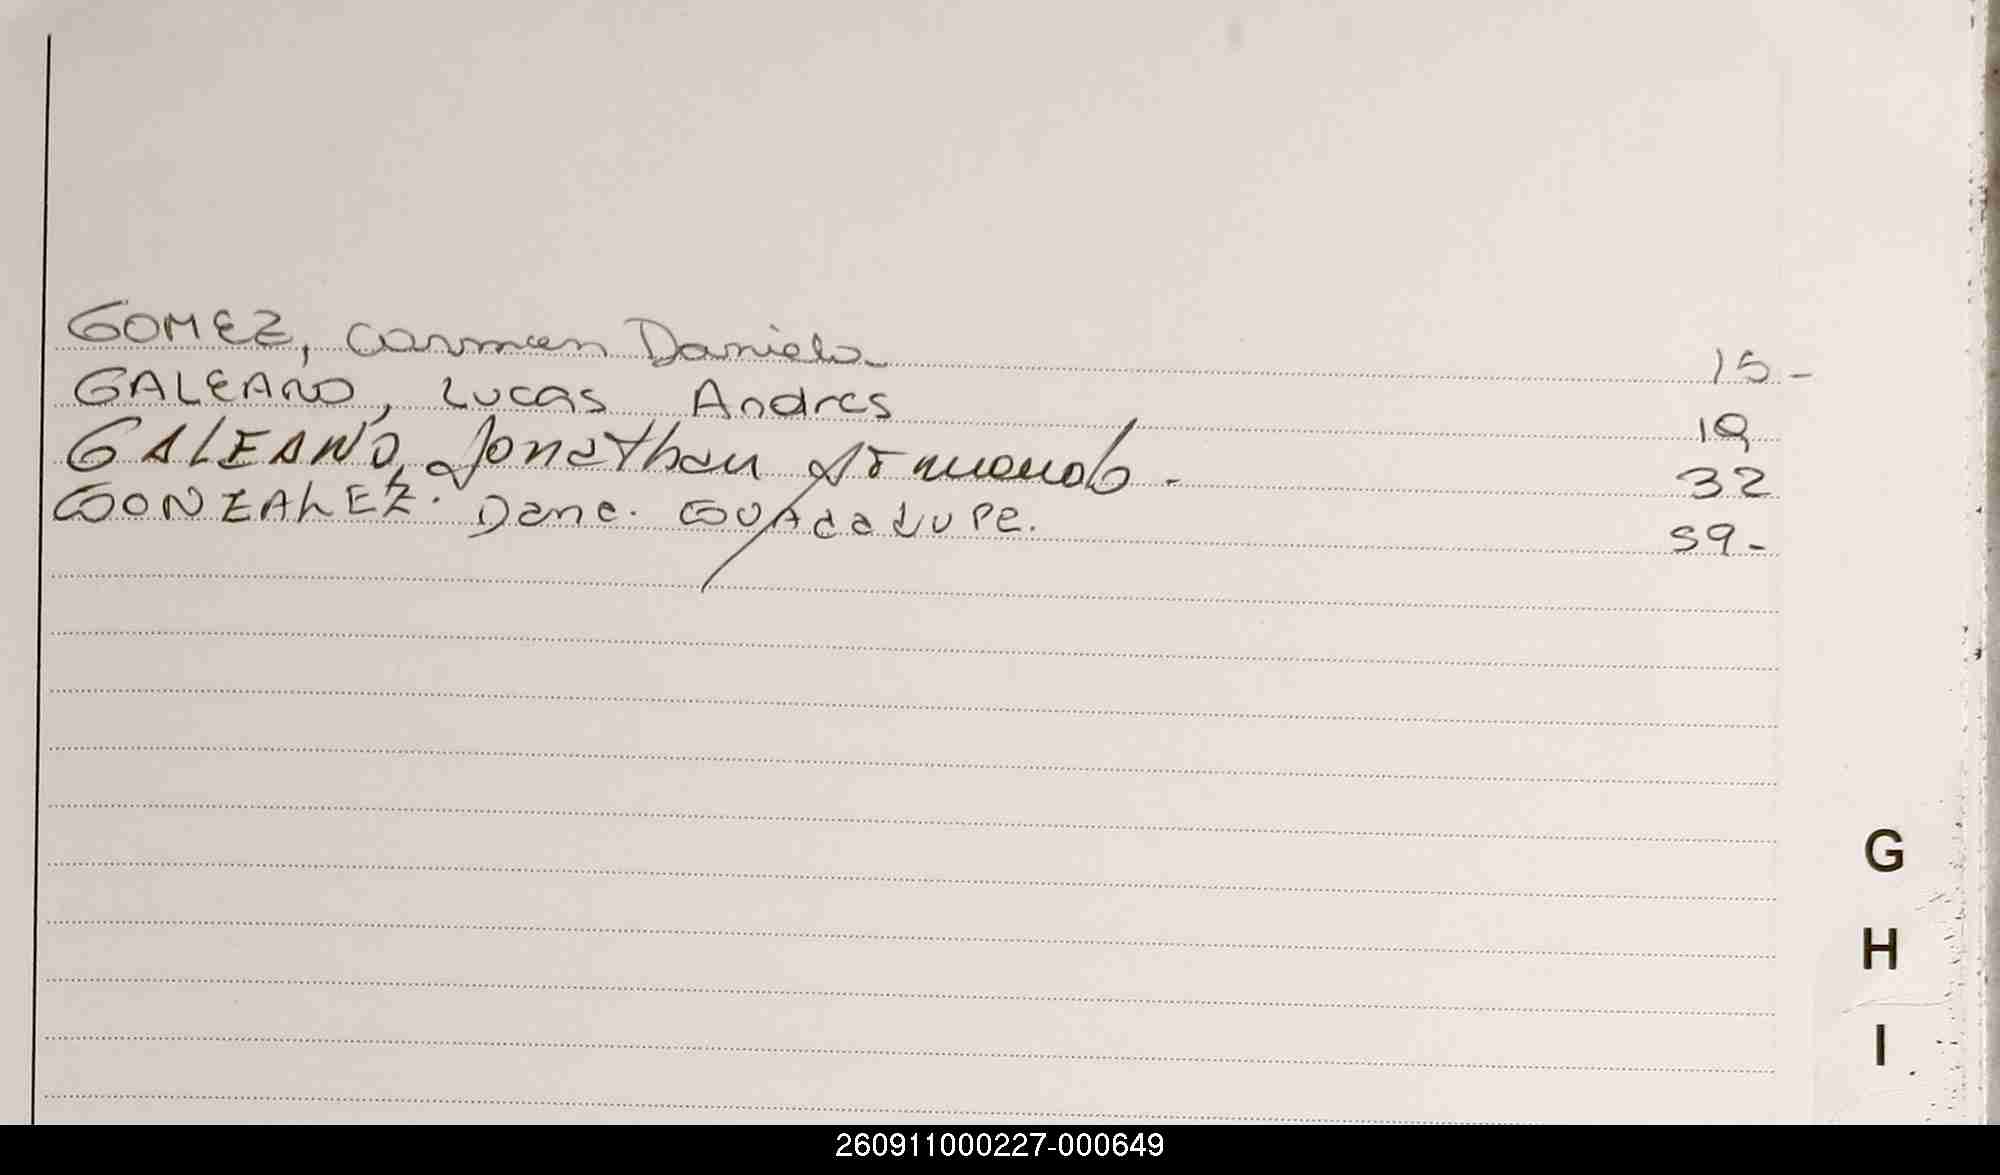 GOMEZ, Carmen Daniela 15-
GALEANO, Lucas Andres 19
GALEANO, Jonathan Armando. 32
GONZALEZ. Dana. GUAdaLUPe. 59-
G
H
I
260911000227-000649